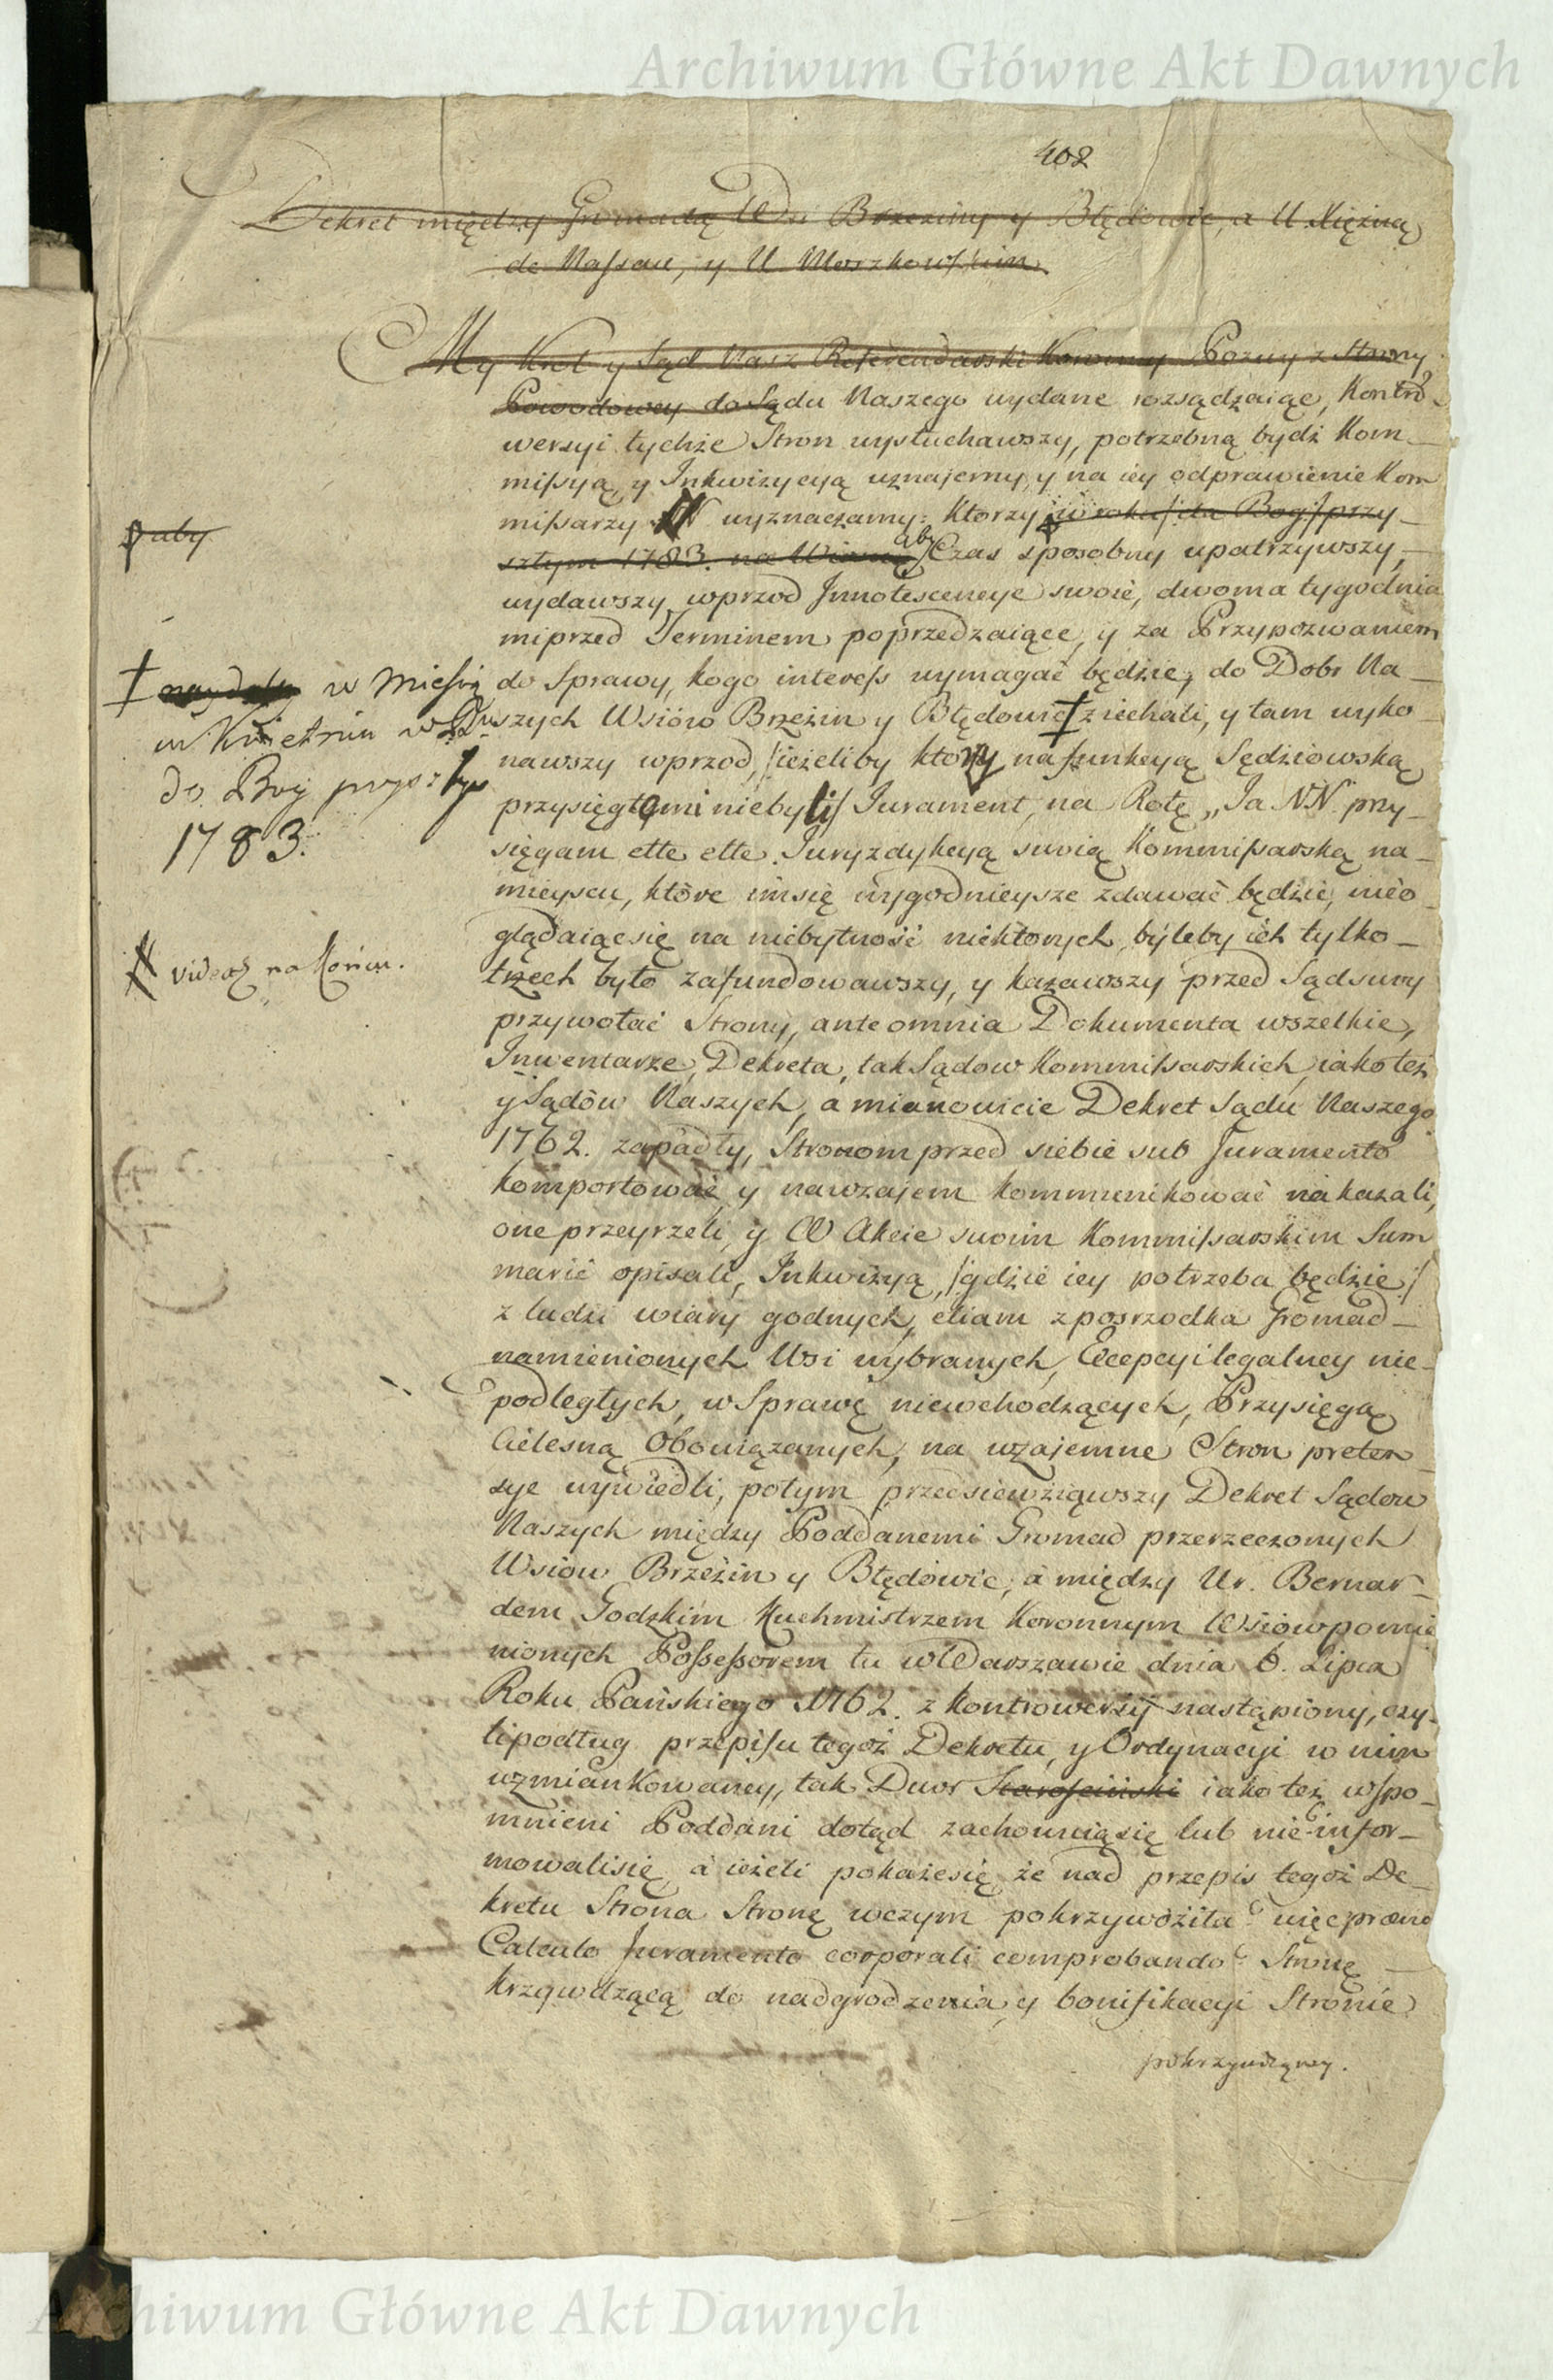 Archiwum Główne Akt Dawnych
402
Dekret między Gromadą Wsi Brzeziny y Błędowic, a U. Xiężną
de Nassau, y U. Moszkowskim
My Krol y Sąd Nasz Referendarski Koronny Pozwy z Strony
Powodowey do Sądu Naszego wydane rozsądzaiąc, Kontro-
wersyi tychże Stron wysłuchawszy, potrzebną bydź Kom-
missyą y Inkwizycyą uznajemy, y na iey odprawienie Kom
missarzy NN wyznaczamy: Ktorzy w roku /da Bog/ przy-
szłym 1783. na aby Czas sposobny upatrzywszy,
p aby
wydawszy wprzod Innotescencye swoie, dwoma tygodnia
mi przed Terminem poprzedzaiące, y za Przypozwaniem
do Sprawy, kogo interess wymagać będzie, do Dobr Na-
szych Wsiów Brzezin y Błędowic ziechali, y tam wyko-
w Miesią
w Kwietniu w R
da Bóg przyszłym
1783.
nawszy wprzod, /ieżeliby ktory na funkcyą Sędziowską
przysięgłemi niebyli/ Jurament, na Rotę „Ja NN. przy-
sięgam ette ette. Juryzdykcyą swoią Kommissarską na-
mieyscu, ktore im się wygodnieysze zdawać będzie, nieo-
glądaiąc się na niebytność niektorych, byleby ich tylko-
trzech było zafundowawszy, y kazawszy przed Sąd swoy
vide na Końcu.
przywołać Strony, ante omnia Dokumenta wszelkie,
Inwentarze, Dekreta, tak Sądow Kommissarskich, iako też
y Sądów Naszych, a mianowicie Dekret Sądu Naszego
1762. zapadły, Stronom przed siebie sub Juramento
komportować y nawzajem kommunikować nakazali,
one przeyrzeli, y W Akcie swoim Kommissarskim Sum
marie opisali, Inkwizyą, /gdzie iey potrzeba będzie/
z ludzi wiary godnych, etiam z posrzodka Gromad-
namienionych Wsi wybranych, Excepcyi legalney nie-
podległych, w Sprawę niewchodzących, Przysięgą
Cielesną Obowiązanych, na wzajemne Stron preten-
sye wywiedli, potym przedsiewziąwszy Dekret Sądow
Naszych między Poddanemi Gromad przerzeczonych
Wsiow Brzezin y Błędowic, a między Ur. Bernar-
dem Godzkim Kuchmistrzem Koronnym Wsiow pomie
nionych Possessorem tu w Warszawie dnia 6. Lipca
Roku Pańskiego 1762. z kontrowersyi nastąpiony, czy-
li podług przepisu tegoż Dekretu, y Ordynacyi w nim
wzmiankowaney, tak Dwor Starościński iako też wspo-
mnieni Poddani dotąd zachowuią się lub nie? infor-
mowali się, a ieżeli pokaże się że nad przepis tegoż De-
kretu Strona Stronę w czym pokrzywdziła? więc prævio
Calculo Juramento corporali comprobando Stronę-
krzywdzącą do nadgrodzenia, y bonifikacyi Stronie
pokrzywdzoney.
Archiwum Główne Akt Dawnych